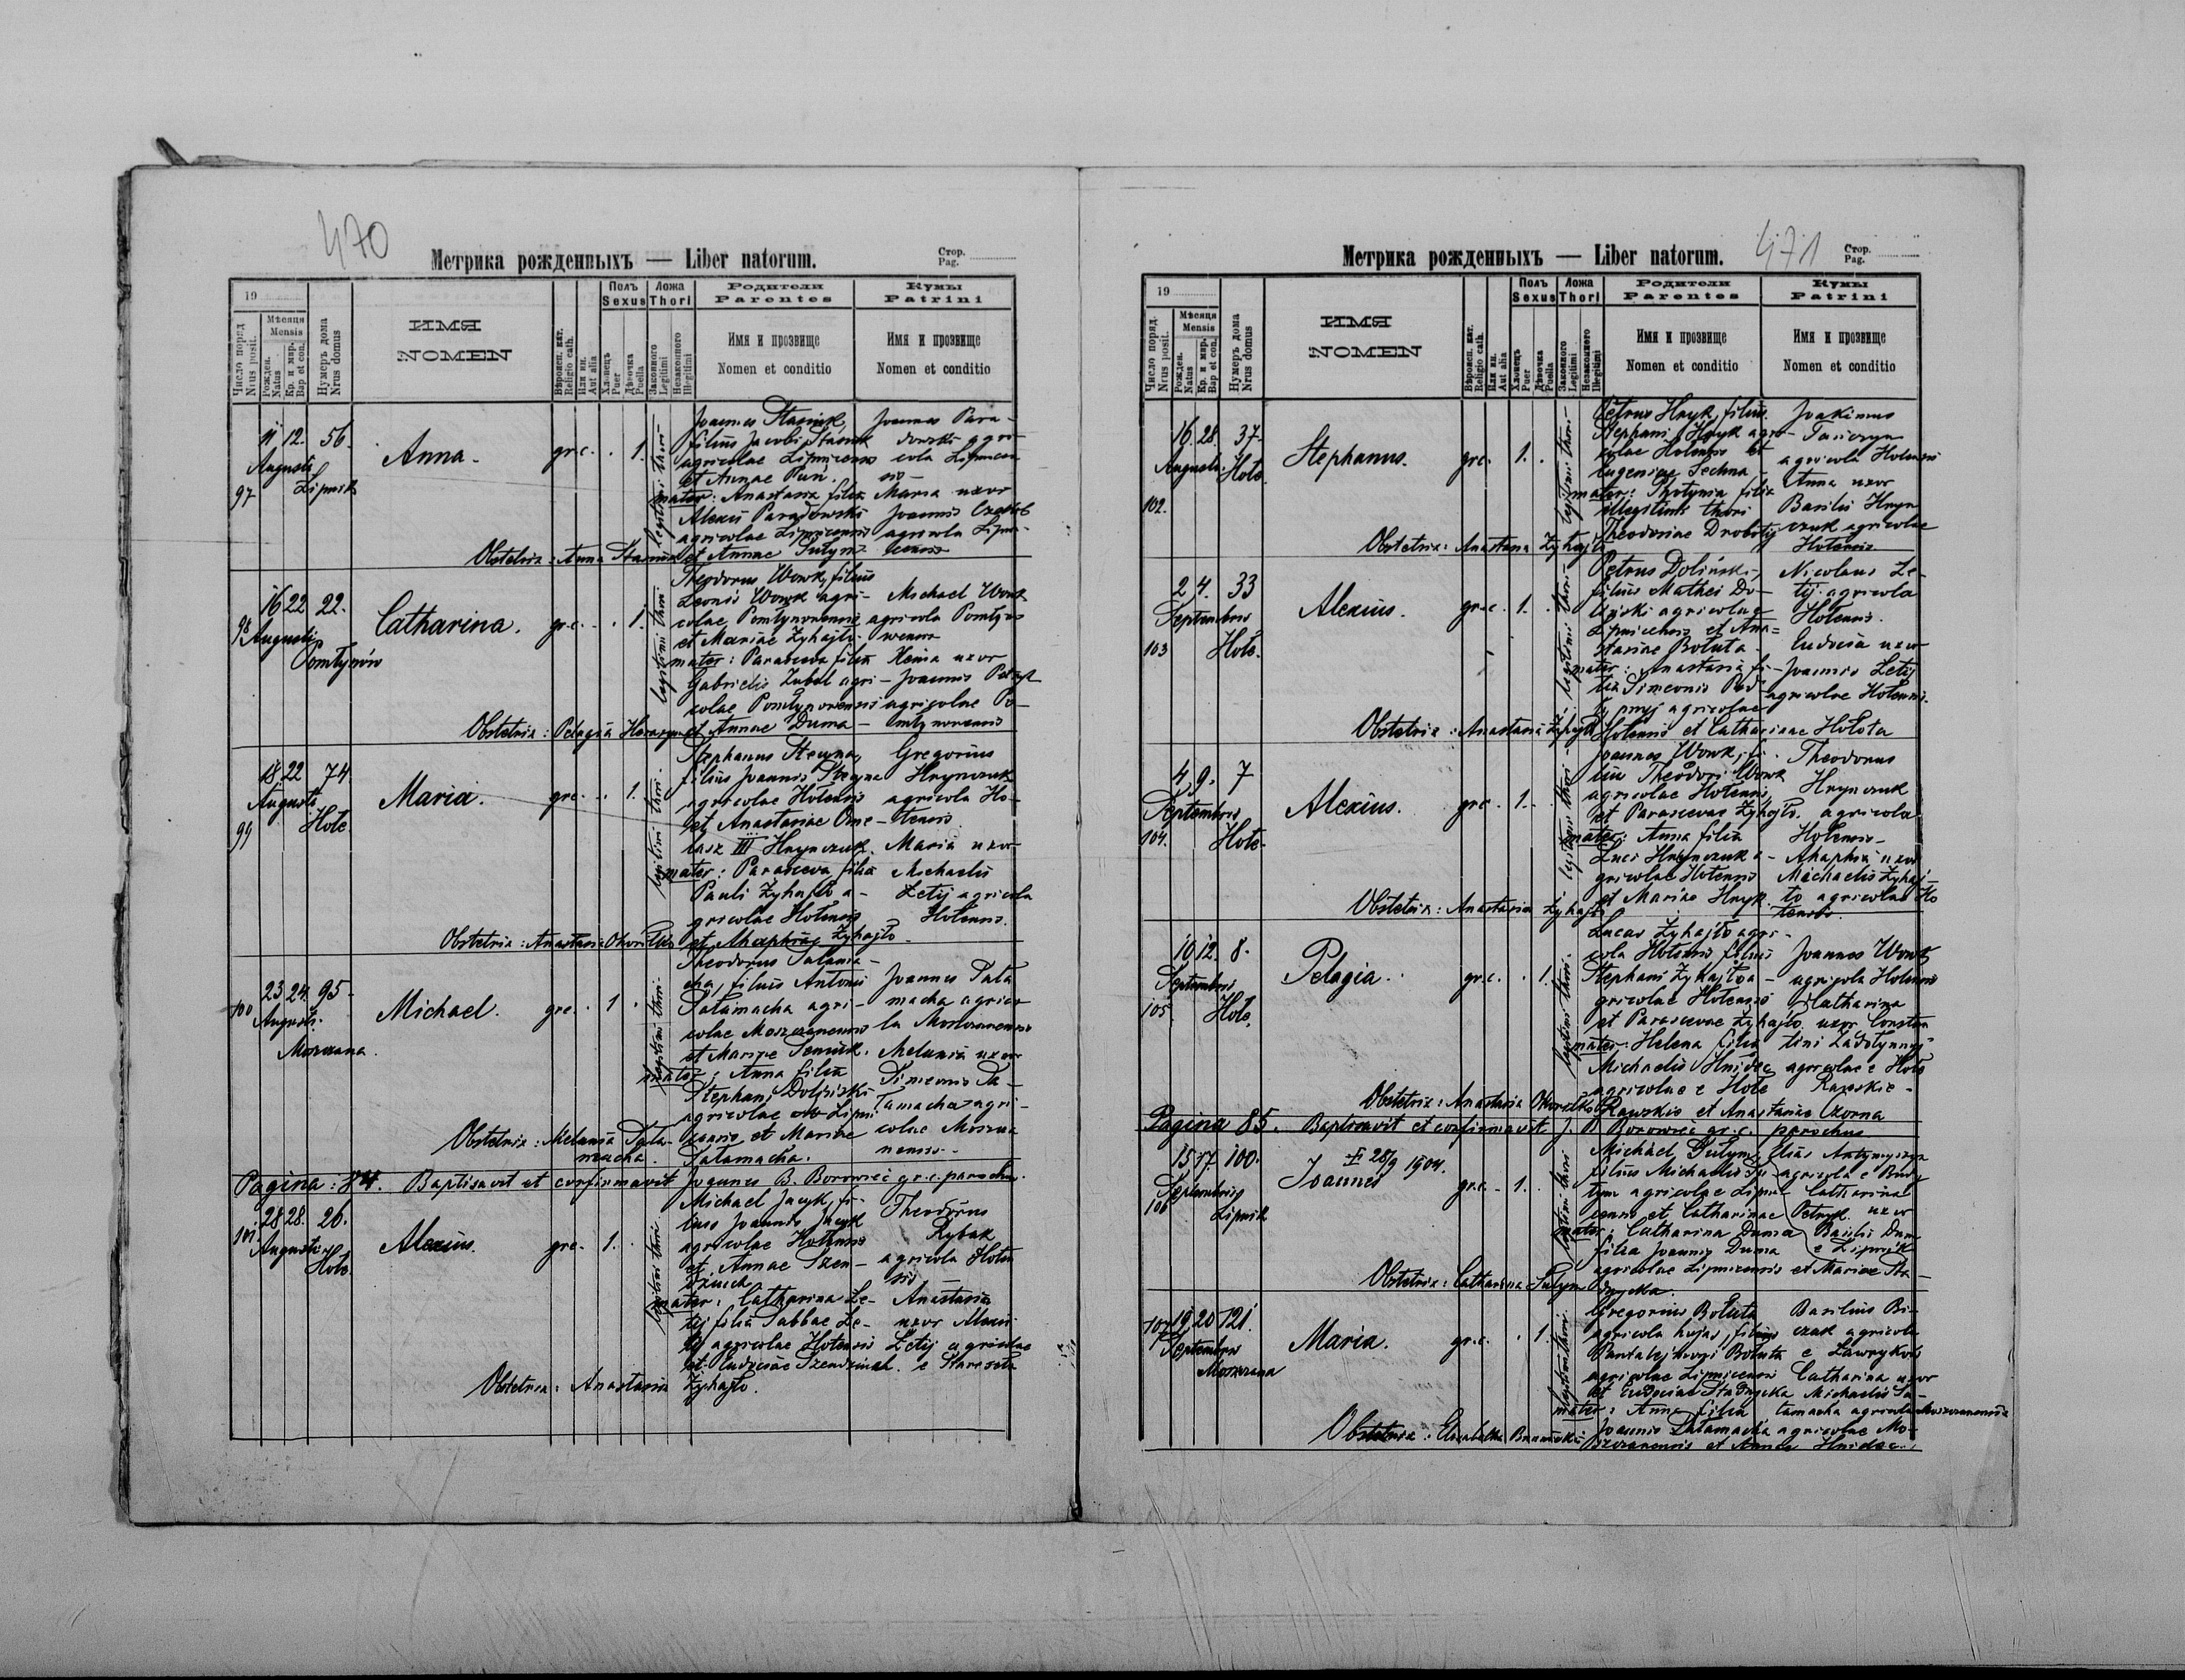 470
Метрика рожденныхъ — Liber natorum.
Стор.
Pag.
19
Число поряд.
Nrus posit.
Мѣсяця
Mensis
Рожден.
Natus
Кр. и мир.
Bap et con.
Нумеръ дома
Nrus domus
ИМЯ
NOMEN
Вѣроисп. кат.
Religio cath.
Или ин.
Aut alia
Полъ
Sexus
Хлопецъ
Puer
Дѣвочка
Puella
Ложа
Thori
Законного
Legitimi
Незаконного
Illegitimi
Родители
Parentes
Имя и прозвище
Nomen et conditio
Кумы
Patrini
Имя и прозвище
Nomen et conditio
11 12. 56.
Augusti
97 Lipnik
Anna.
gr.c. . 1.
legitimi thori
Joannes Stasiuk,
filius Jacobi Stasiuk
agricolae Lipnicensis
et Annae Puń.
mater: Anastasia filia
Alexii Paradowski
agricolae Lipnicensis
et Annae Sutym
Joannes Para-
dowski agri-
cola Lipnicen
sis
Maria uxor
Joannis
agricola Lipni-
censis
Obstetrix: Anna Stasiuk
16 22 22.
98 Augusti
Pomłynów
Catharina.
gr.c. . 1.
legitimi thori
Theodorus Wowk, filius
Leonis Wowk agri-
colae Pomłynovensis
et Mariae Żyhajło.
mater: Parasceva filia
Gabrielis Zubal agri-
colae Pomłynovensis
et Annae Duma
Michael Wowk
agricola Pomłyno
wensis
Xenia uxor
Joannis Petryk
agricolae Po-
młynovensis
Obstetrix: Pelagia
18 22 74
Augusti
99 Hole
Maria.
gr.c. . 1.
legitimi thori
Stephanus Stecyna,
filius Joannis Stecyna
agricolae Holensis
et Anastasiae Ome-
lasz III Hrynczuk.
mater: Parasceva filia
Pauli Żyhajło a-
gricolae Holensis
et Ahaphiae Żyhajło.
Gregorius
Hrynczuk
agricola Ho-
lensis.
Maria uxor
Michaelis
Letij agricola
Holensis.
Obstetrix: Anastasia Okoniłko
23 24 95
100 Augusti.
Moszczana.
Michael.
gr.c. . 1 .
legitimi thori
Theodorus Tatama-
cha, filius Antonii
Tatamacha agri-
colae Moszczanensis
et Mariae Seniuk.
mater: Anna filia
Stephani Doliński
agricolae Lipni
censis et Mariae
Tatamacha.
Joannes Tata
macha agrico
la Moszczanensis
Melania uxor
Simeonis Ta-
tamacha agri-
colae Moszcza
nensis.
Obstetrix: Melania Tata-
macha.
Pagina: 84. Baptisavit et confirmavit Joannes B. Borowieć gr.c. parochus.
28 28. 26.
101. Augusti
Hole
Alexius.
gr.c. 1. .
legitimi thori
Michael Jacyk, fi-
lius Joannis Jacyk
agricolae Holensis
et Annae Szen-
dziuch
mater: Catharina Le-
tij filia Sabbae Le-
tij agricolae Holensis
et Eudociae Szendziuch.
Theodorus
Rybak
agricola Holen
sis
Anastasia
uxor Alexii
Letij agricolae
e Staresioła
Obstetrix: Anastasia Żyhajło.
471
Метрика рожденныхъ — Liber natorum.
Стор.
Pag.
19
Число поряд.
Nrus posit.
Мѣсяця
Mensis
Рожден.
Natus
Кр. и мир.
Bap et con.
Нумеръ дома
Nrus domus
ИМЯ
NOMEN
Вѣроисп. кат.
Religio cath.
Или ин.
Aut alia
Полъ
Sexus
Хлопецъ
Puer
Дѣвочка
Puella
Ложа
Thori
Законного
Legitimi
Незаконного
Illegitimi
Родители
Parentes
Имя и прозвище
Nomen et conditio
Кумы
Patrini
Имя и прозвище
Nomen et conditio
16. 28. 37.
Augusti. Hole
102.
Stephanus.
gr.c. 1. .
legitimi thori
Petrus Hryk, filius
Stephani Hryk agri-
colae Holensis et
Eugeniae Sechna
mater: Photynia filia
illegitimi thori
Theodosiae Drobotij
Joakimus
agricola Holensis
Anna uxor
Basilii Hryn
czuk agricolae
Holensis
Obstetrix: Anastasia Żyhajło
2 4. 33
Septembris
103 Hole.
Alexius.
gr.c. 1. .
legitimi thori
Petrus Doliński,
filius Mathei Do-
liński agricolae
Lipnicensis et Ana=
stasiae Botuta
mater: Anastasia fi-
lia Simeonis Pod-
agricolae
Holensis et Catharinae Hołota
Nicolaus Le-
tij agricola
Holensis.
Eudocia uxor
Joannis Letij
agricolae Holensis.
Obstetrix: Anastasia Żyhajło
4. 9. 7
Septembris
104. Hole.
Alexius.
gr.c. 1. .
legitimi thori
Joannes Wowk, fi-
lius Theodori Wowk
agricolae Holensis,
et Parascevae Żyhajło.
mater: Anna filia
Luci Hrynczuk a-
gricolae Holensis
et Mariae Hryk.
Theodorus
Hrynczuk
agricola
Holensis
Ahaphia uxor
Michaelis Żyhaj-
ło agricolae Ho
lensis.
Obstetrix: Anastasia Żyhajło
10 12. 8.
Septembris
105. Hole.
Pelagia.
gr.c. . 1.
legitimi thori
Lucas Żyhajło agri-
cola Holensis filius
Stephani Żyhajło a-
gricolae Holensis
et Parascevae Żyhajło
mater: Helena filia
Michaelis Hnidec
agricolae e Hole
Rawskie et Anastasiae Czorna
Joannes Wowk
agricola Holensis
Catharina
uxor Constan
tini
agricolae e Hole
Rawskie
Obstetrix: Anastasia Okoniłko
Pagina 85. Baptisavit et confirmavit J. B. Borowieć gr.c. parochus
15 17. 100.
Septembris
106 Lipnik
Joannes
✝ 28/9 1904.
gr.c. 1. .
legitimi thori
Michael Sutym,
filius Michaelis Su-
tym agricolae Lipni-
censis et Catharinae Petryk.
mater: Catharina Duma
filia Joannis Duma
agricolae Lipnicensis et Mariae Sta-
dnycka.
Elias
agricola e
Catharina
uxor
Basilii Dum
e Lipnik
Obstetrix: Catharina Sutym
107 19 20 121.
Septembris
Moszczana
Maria.
gr.c. . 1.
legitimi thori
Gregorius Botuta
agricola hujas, filius
Pantalejmoni Botuta
agricolae Lipnicensis
et Eudociae Stadnycka
mater: Anna filia
Joannis Tatamacha agricolae Mo-
szczanensis et Annae Hnidec.
Basilius Bi-
czak agricola
e Ławryków
Catharina uxor
Michaelis Ta-
tamacha agricolae Moszczanensis
Obstetrix: Elisabetha